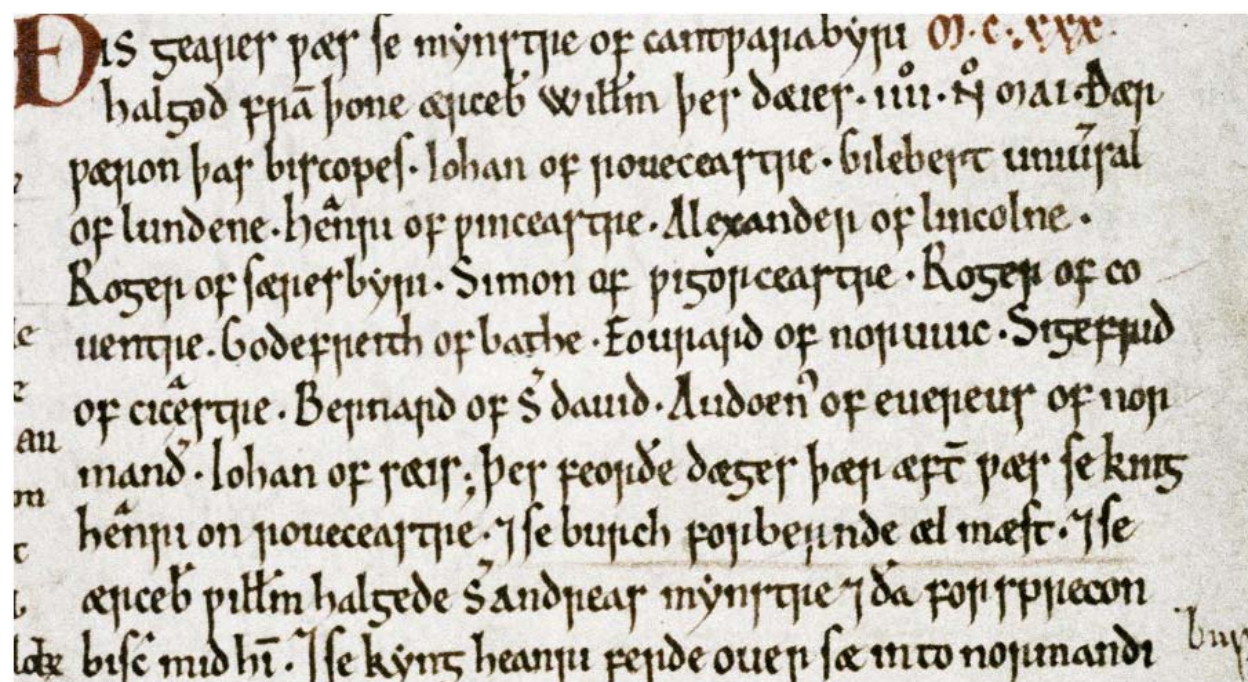 Ðis geares ƿæs se mynstre of cantƿarabyri M.c.xxx.
halgod frā þone ærceƀ Willm̄ þes dæies. iiiiº. Nº MAI. Ðær
ƿæron þas biscopes. Iohan of roueceastre. Gilebert uniũsal
of lundene. hênri of ƿinceastre. Alexander of lincolne.
Roger of særesbyri. Simon of ƿigorceastre. Roger of co
uentre. Godefreith of bathe. Eourard of noruuic. Sigefrid
of cicêstre. Bernard of S' dauid. Audoen' of euereus of nor
mand'. Iohan of sæis; þes feorðe dæges þær æft̄ ƿæs se king
hênri on roueceastre. ⁊ se burch forbernde æl mæst. ⁊ se
ærceƀ ƿillm̄ halgede S' andreas mynstre ⁊ ða for sprecon
bisc̄ mid hī. ⁊ se kyng heanri ferde ouer sæ into normandi